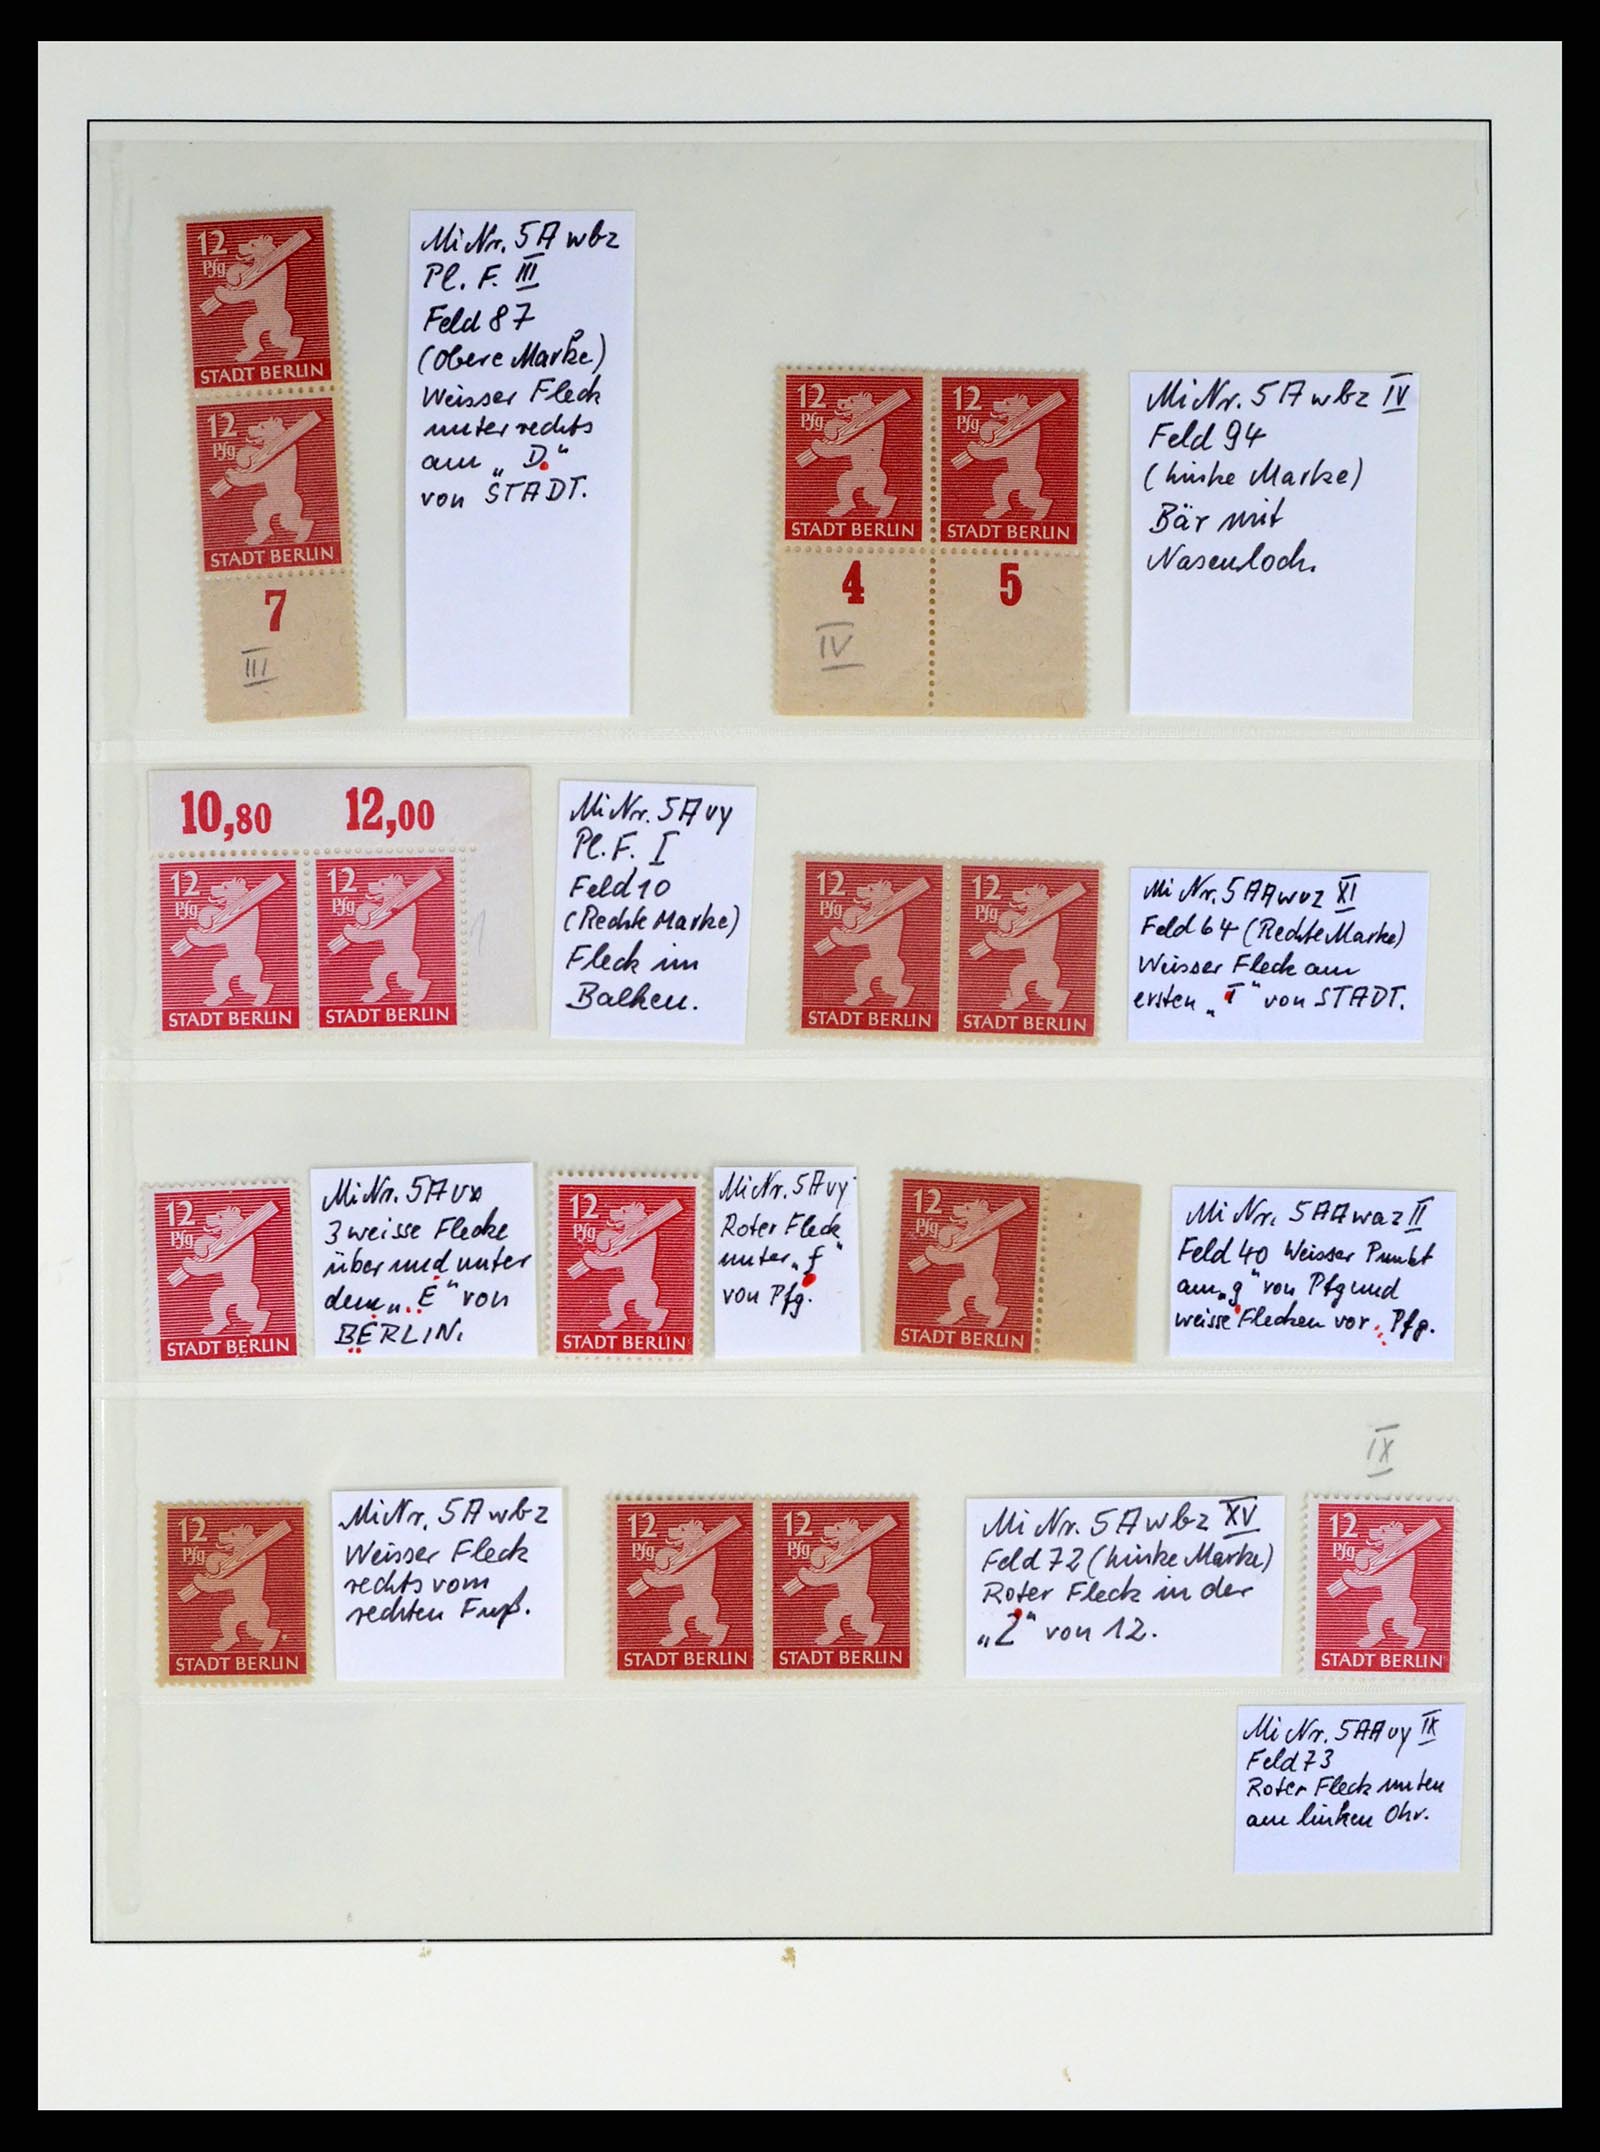 12
Pfg
STADT BERLIN
12
Pfg
STADT BERLIN
7
III
Mi Nr. 5A wbz
Pl. F. III
Feld 87
(Obere Marke)
Weisser Fleck
unter rechts
am „D"
von STADT.
12
Pfg
STADT BERLIN
12
Pfg
STADT BERLIN
4
5
IV
Mi Nr. 5A wbz IV
Feld 94
(linke Marke)
Bär mit
Nasenloch.
10,80
12,00
12
Pfg
STADT BERLIN
12
Pfg
STADT BERLIN
1
Mi Nr. 5A vy
Pl. F. I
Feld 10
(Rechte Marke)
Fleck im
Balken.
12
Pfg
STADT BERLIN
12
Pfg
STADT BERLIN
Mi Nr. 5AA wvz XI
Feld 64 (Rechte Marke)
Weisser Fleck am
ersten „T" von STADT.
12
Pfg
STADT BERLIN
Mi Nr. 5A vx
3 weisse Flecke
über und unter
dem „E" von
BERLIN.
12
Pfg
STADT BERLIN
Mi Nr. 5A vy
Roter Fleck
unter „f"
von Pfg.
12
Pfg
STADT BERLIN
Mi Nr. 5AA waz II
Feld 40 Weisser Punkt
am „g" von Pfg und
weisse Flecken vor Pfg.
12
Pfg
STADT BERLIN
Mi Nr. 5A wbz
Weisser Fleck
rechts vom
rechten Fuß.
12
Pfg
STADT BERLIN
12
Pfg
STADT BERLIN
Mi Nr. 5A wbz XV
Feld 72 (linke Marke)
Roter Fleck in der
„2" von 12.
IX
12
Pfg
STADT BERLIN
Mi Nr. 5AA vy IX
Feld 73
Roter Fleck unten
am linken Ohr.